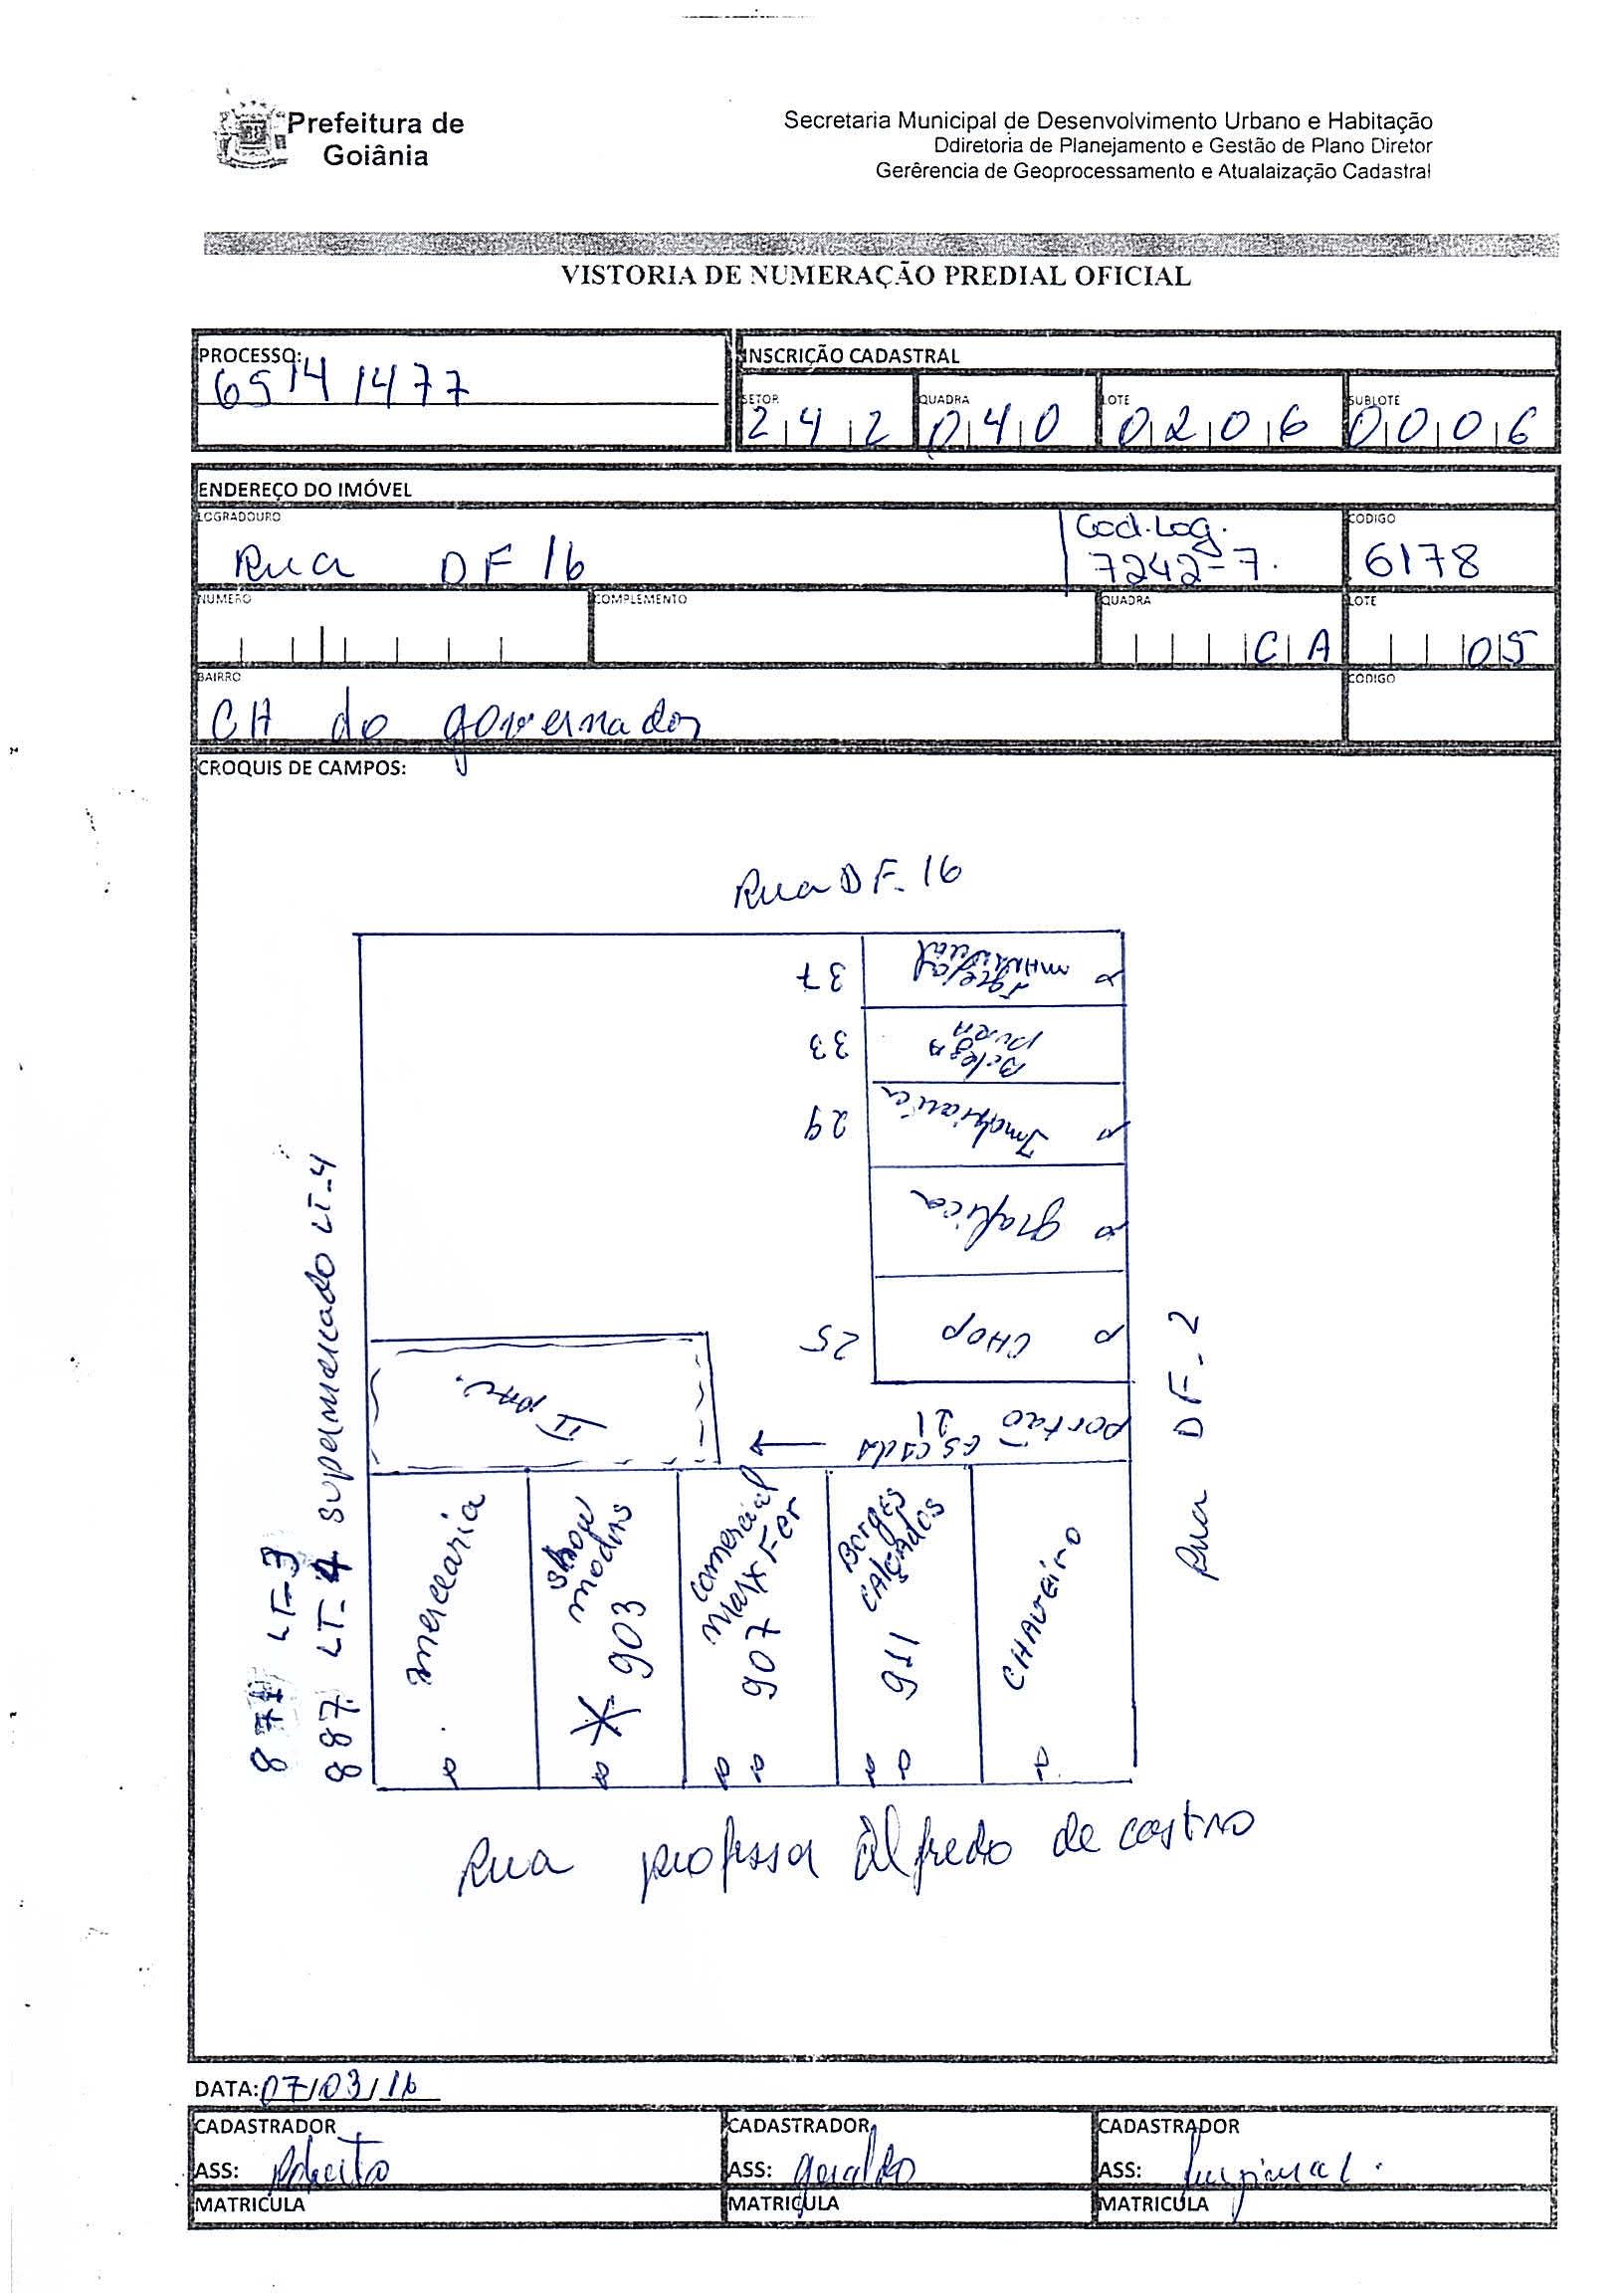 Prefeitura de
Goiânia
Secretaria Municipal de Desenvolvimento Urbano e Habitação
Ddiretoria de Planejamento e Gestão de Plano Diretor
Gerêrencia de Geoprocessamento e Atualaização Cadastral
VISTORIA DE NUMERAÇÃO PREDIAL OFICIAL
PROCESSO:
65141477
INSCRIÇÃO CADASTRAL
SETOR QUADRA LOTE SUBLOTE
242 040 0206 0006
ENDEREÇO DO IMÓVEL
LOGRADOURO
Rua DF 16
Cod.Log.
7242-7.
CODIGO
6178
NUMERO COMPLEMENTO QUADRA LOTE
CA 05
BAIRRO
CH do governador
CODIGO
CROQUIS DE CAMPOS:
Rua DF-16
37
Igreja
33
29
grafica
25
CHOP
portão
21
escada
Rua DF-2
LT-3
887 LT-4 supermercado LT-4
mercearia
show
modas
* 903
comercial
Max Fer
907
Borges
calçados
911
CHAVEIRO
Rua professor Alfredo de castro
DATA: 07/03/16
CADASTRADOR CADASTRADOR CADASTRADOR
ASS: Roberto ASS: Geraldo ASS:
MATRICULA MATRICULA MATRICULA